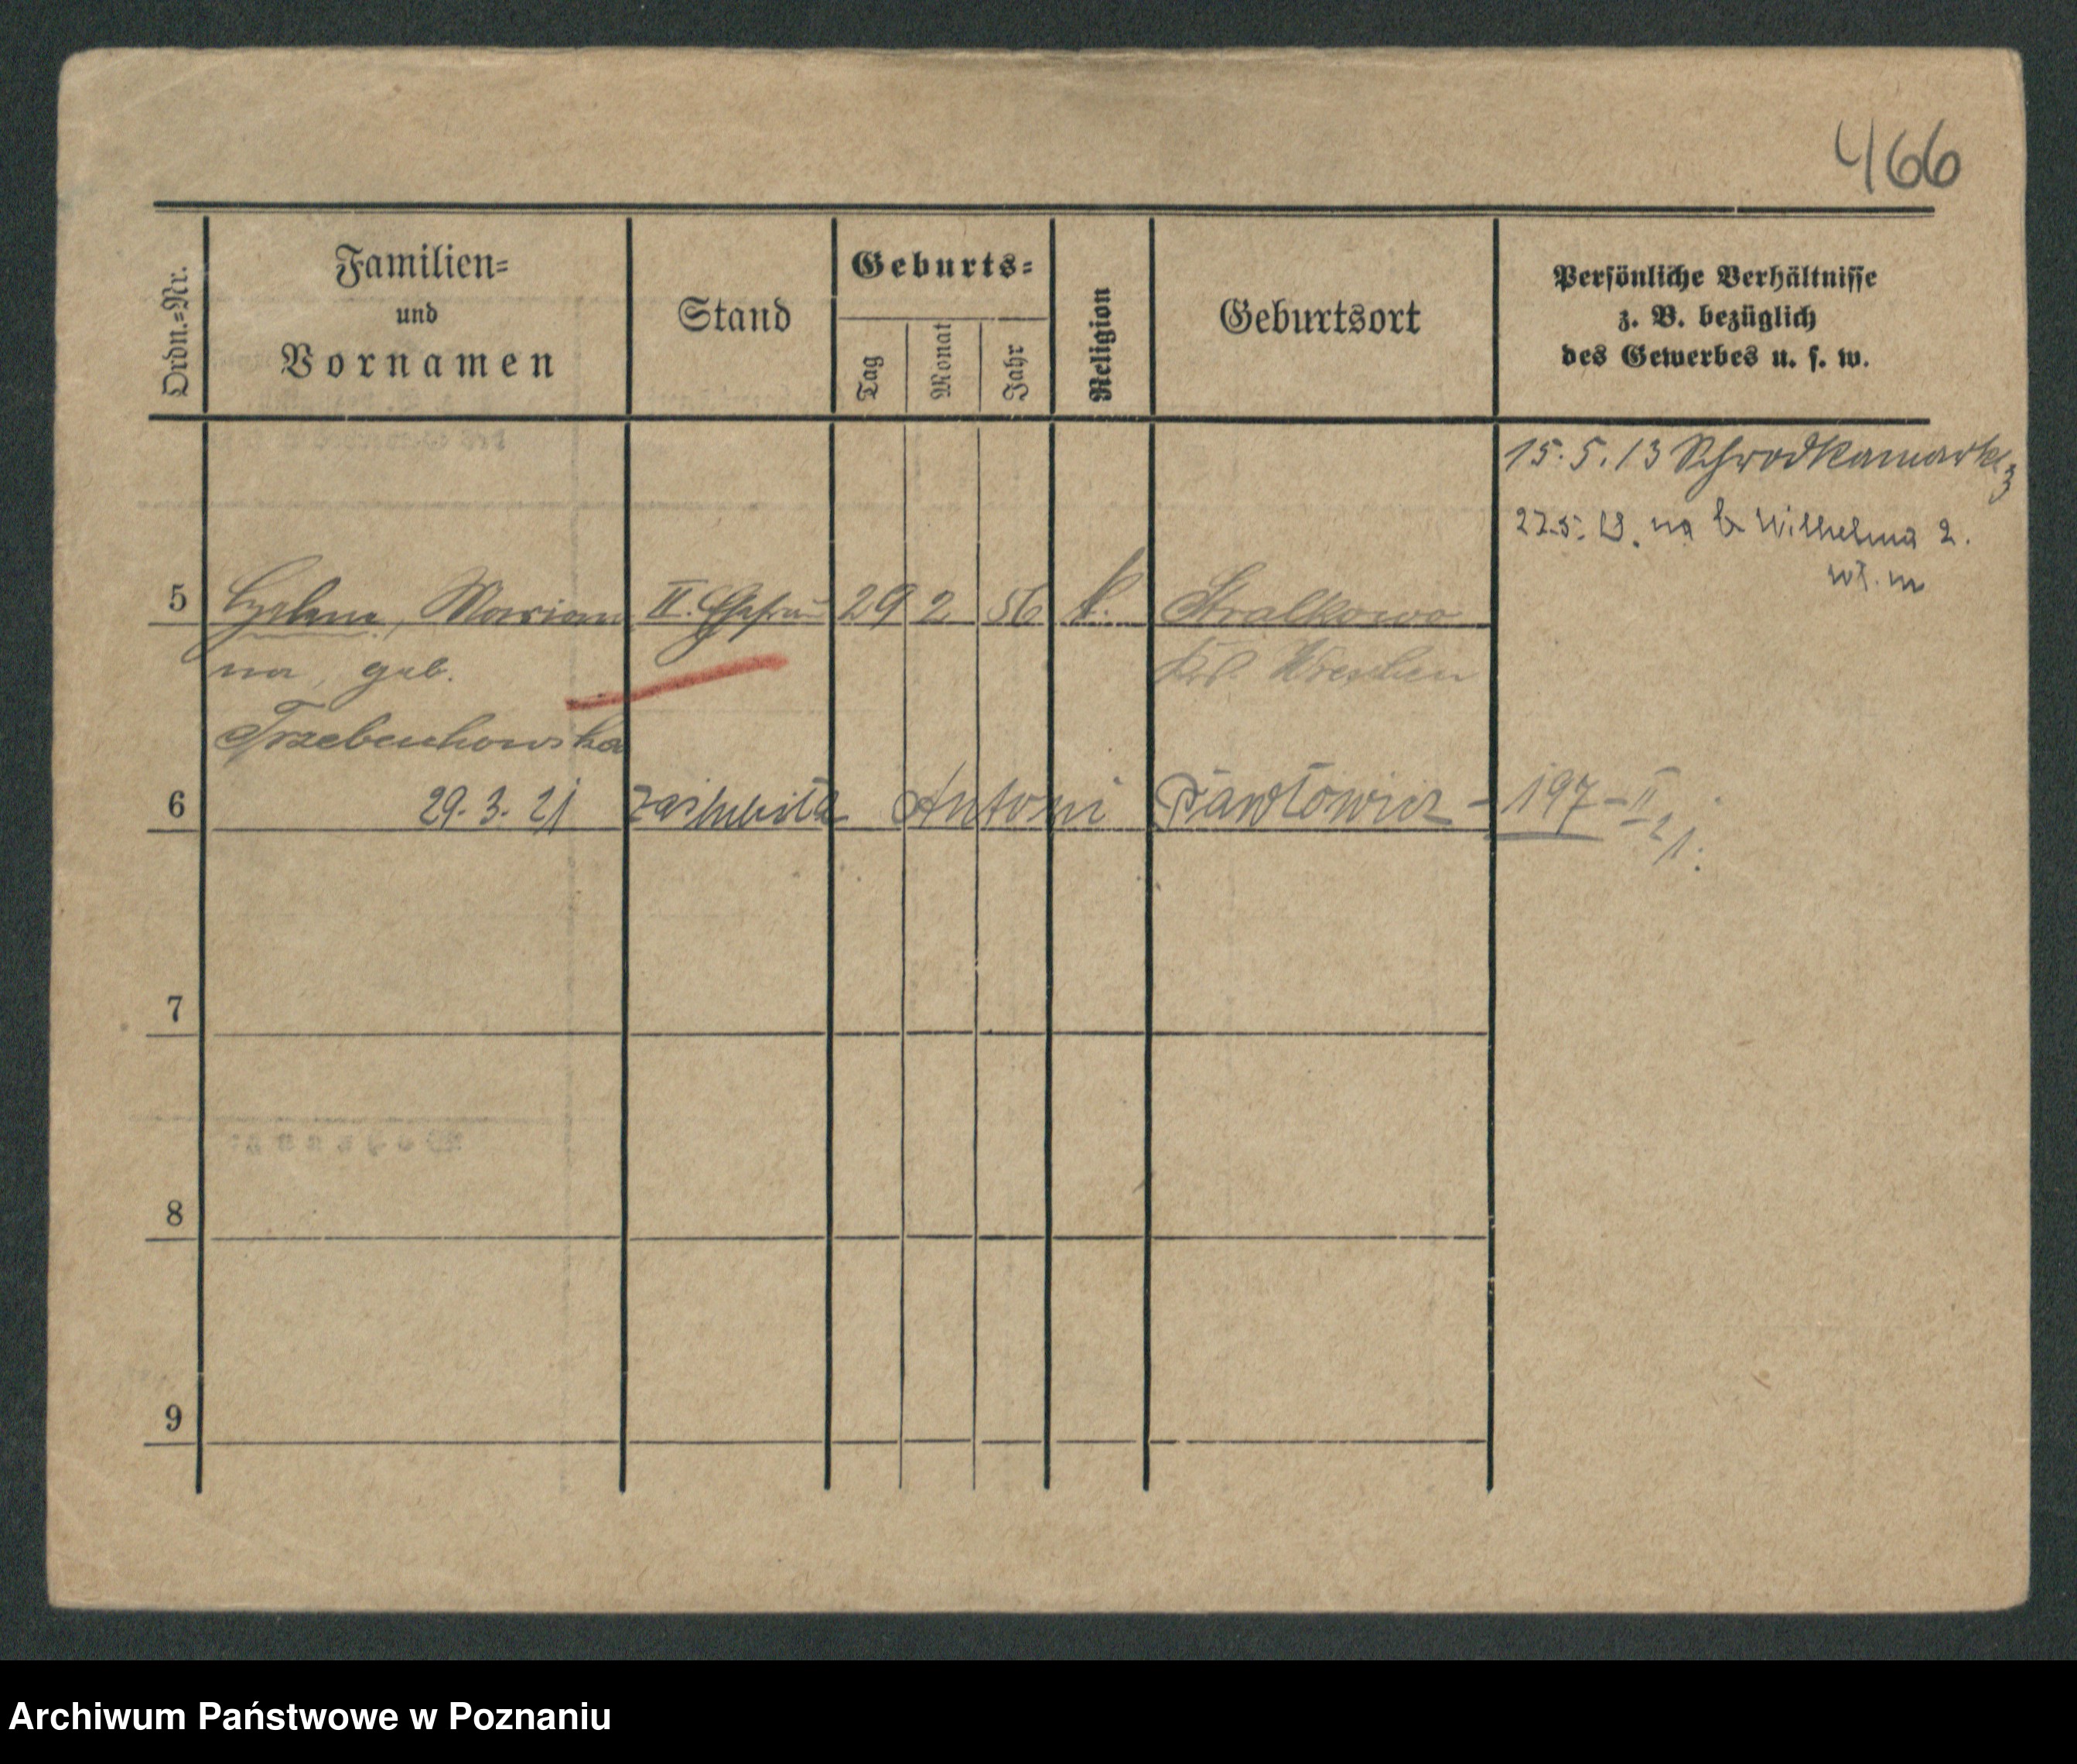 466
Ordn.=Nr.
Familien=
und
Vornamen
Stand
Geburts=
Tag
Monat
Jahr
Religion
Geburtsort
Persönliche Verhältnisse
z. B. bezüglich
des Gewerbes u. s. w.
15.5.13 Schrodkamarkt 3
22.5. na Wilhelma 2.
5 Marian II. Ehefrau 29 2 56 k. Stralkowo
na, geb. Krs. Wreschen
6 29.3.21 zaślubiła Antoni Pawłowicz - 197 - II
21.
7
8
9
Archiwum Państwowe w Poznaniu